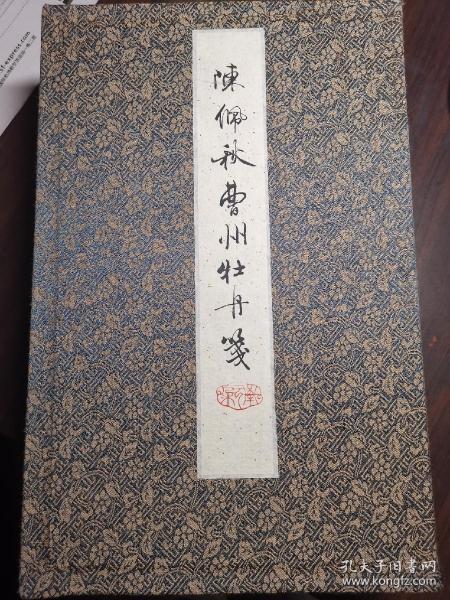 陳佩秋曹州牡丹箋
孔夫子旧书网
www.kongfz.com